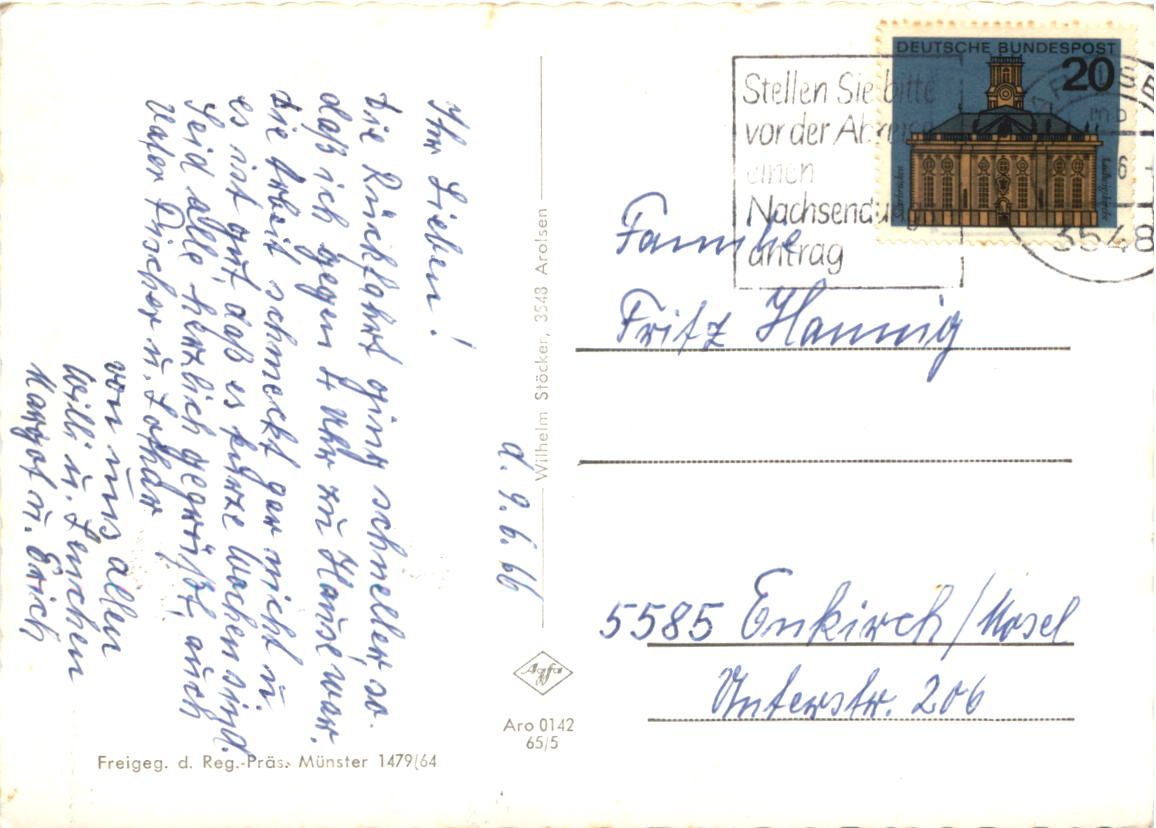 d. 9.6.66
Ihr Lieben!
Die Rückfahrt ging schneller so
daß ich gegen 4 Uhr zu Hause war.
Die Arbeit schmeckt gar nicht u.
es ist gut daß es kurze Wochen sind.
Seid alle herzlich gegrüßt, auch
Vater Discher u. Lothar
von uns allen
Willi u. Lenchen
Margot u. Erich
Freigeg. d. Reg.-Präs. Münster 1479/64
Wilhelm Stöcker, 3548 Arolsen
Agfa
Aro 0142
65/5
DEUTSCHE BUNDESPOST
20
Saarbrücken
Ludwigskirche
Stellen Sie bitte
vor der Abreise
einen
Nachsendungs
antrag
3548
Familie
Fritz Hannig
5585 Enkirch/Mosel
Unterstr. 206